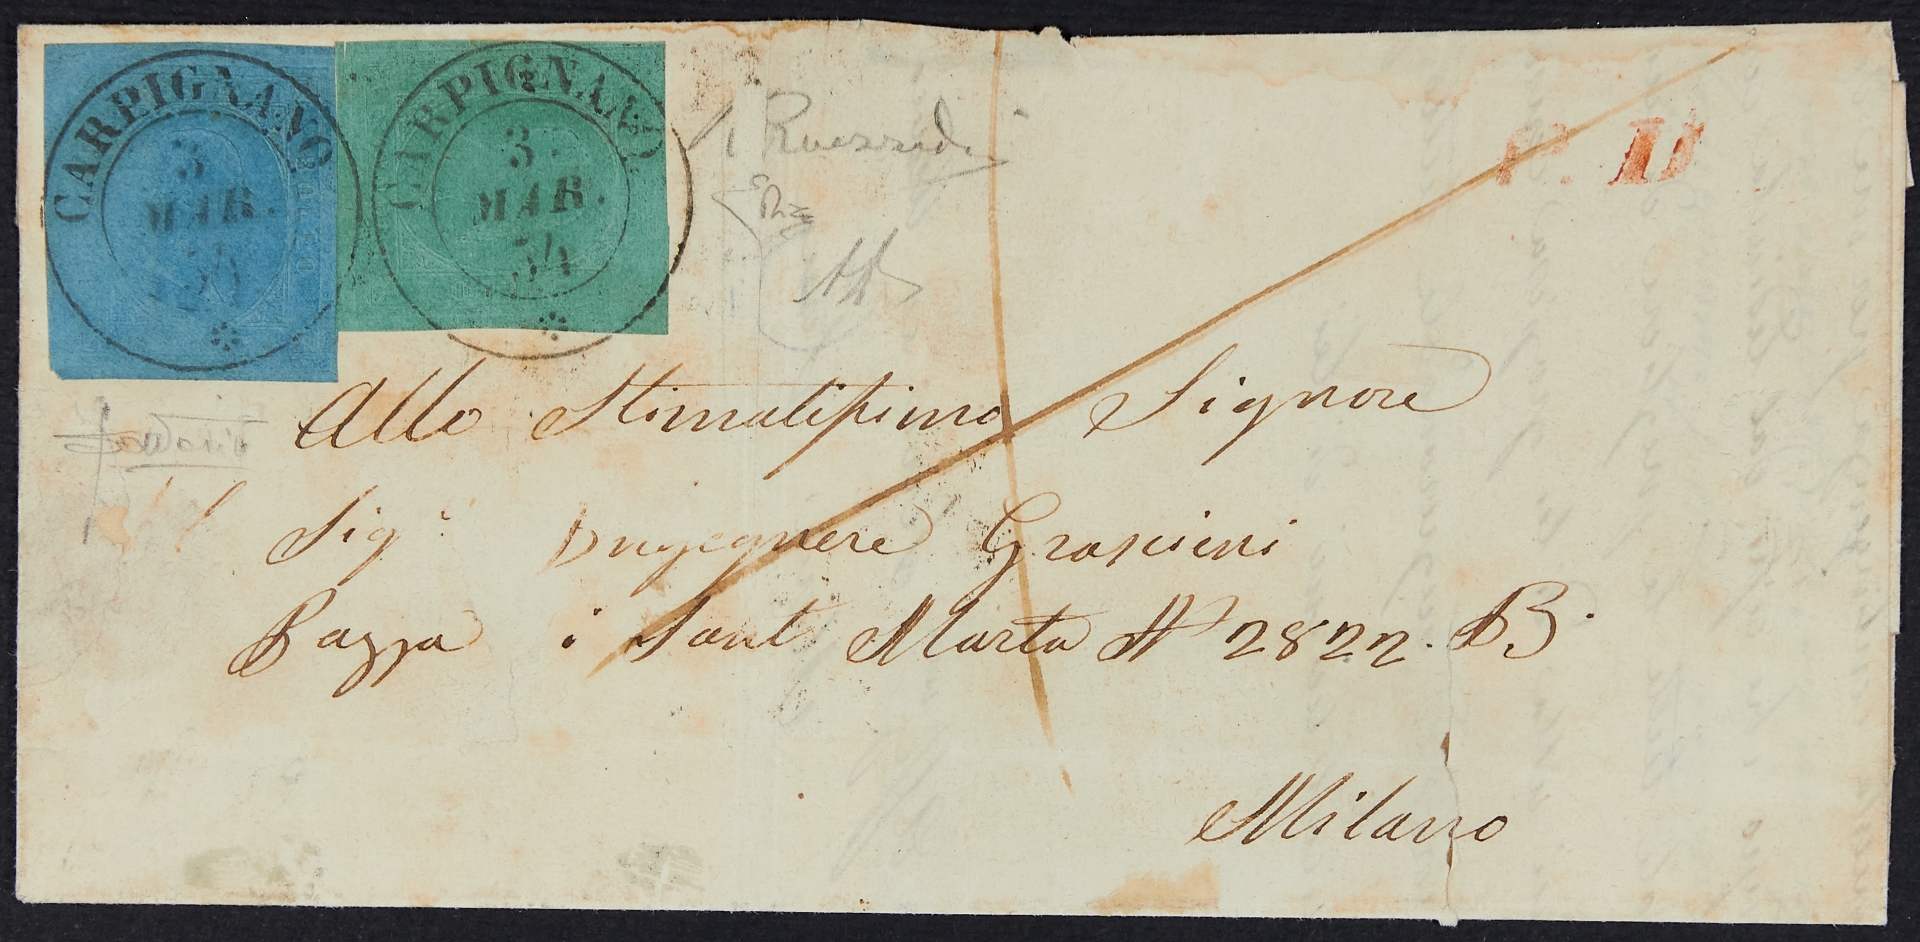 CARPIGNANO
3
MAR.
54
CARPIGNANO
3
MAR.
54
P. D.
Allo Stimatissimo Signore
Sig.r Ingegnere Grassini
Bazza i Sant Marta N° 2822. B.
Milano